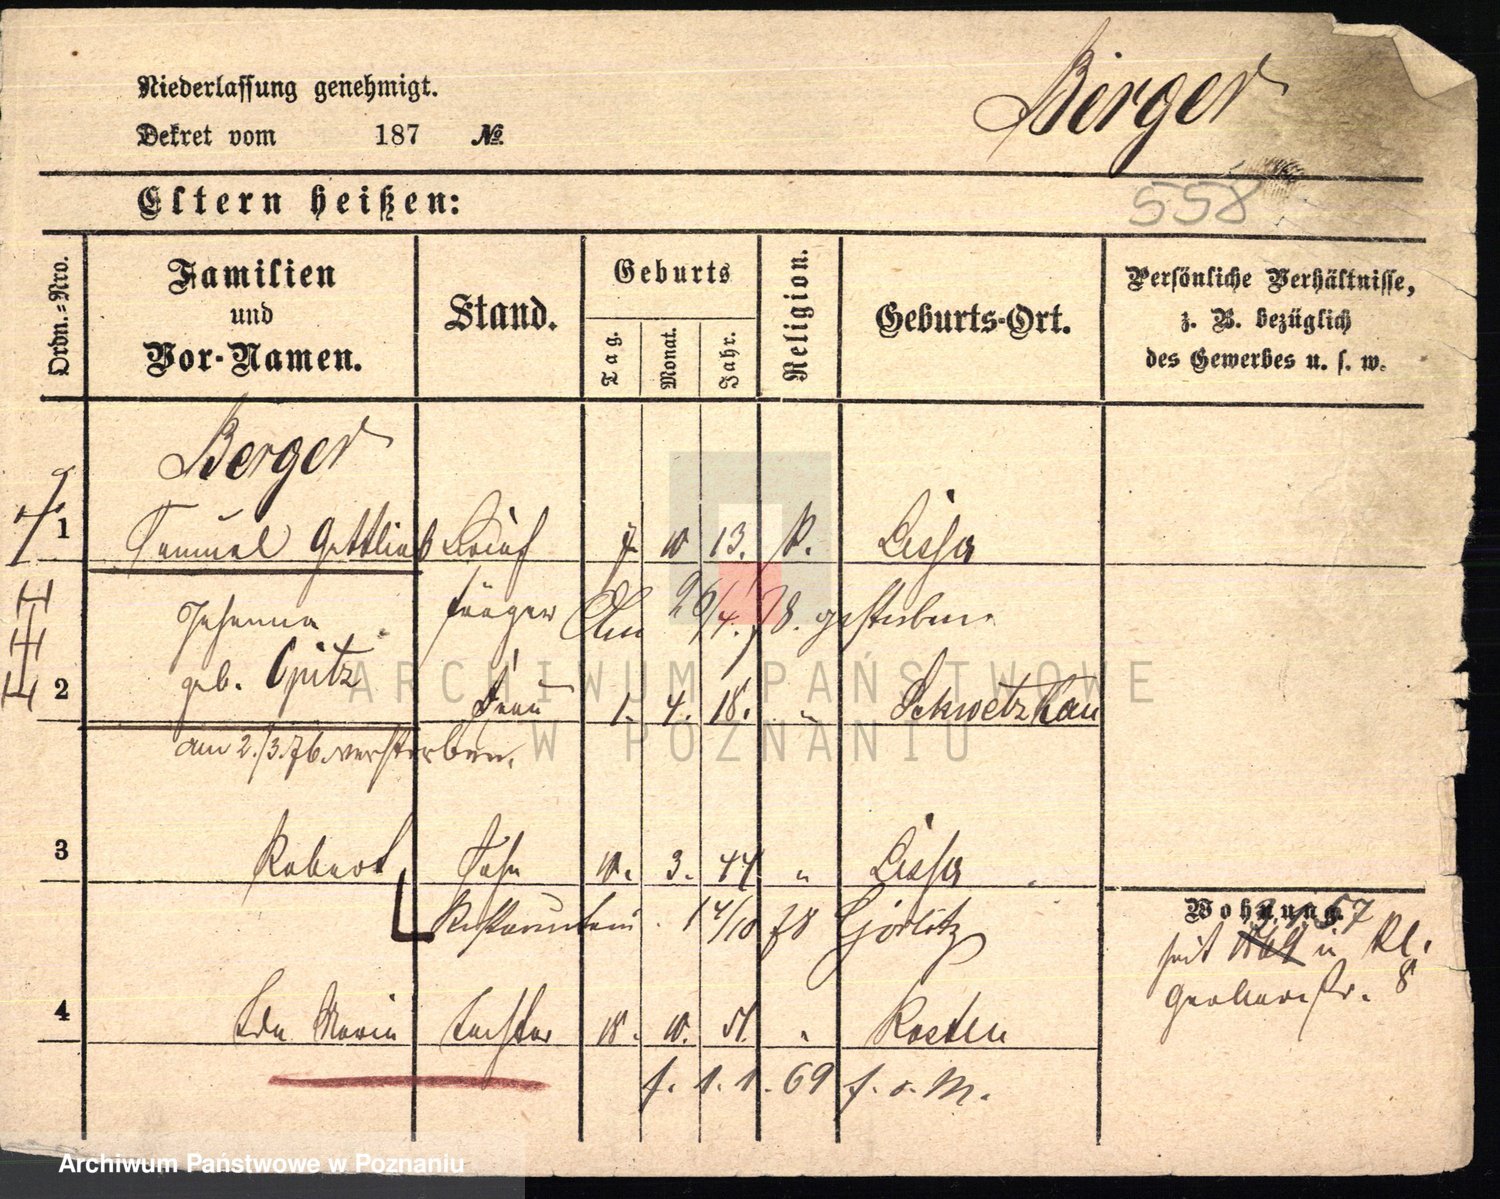 Niederlassung genehmigt.
Berger
Dekret vom 187 №
558
Eltern heißen:
Ordn.-Nro.
Familien
und
Vor-Namen.
Stand.
Geburts
Tag.
Monat.
Jahr.
Religion.
Geburts-Ort.
Persönliche Verhältnisse,
z. B. bezüglich
des Gewerbes u. s. w.
Berger
1 Samuel Gottlieb 7. 10 13. k. Lissa
Johanna Am 26/4. 78. gestorben.
geb. Opitz
2 Frau 1. 4. 18. " Schwetzkau
am 2./3.76. verstorben.
3 Robert Sohn 10. 3. 44 " Lissa
14/10 78 Görlitz
Wohnung.
57
seit 1869 in Kl.
Gerberstr. 8
4 Ida Maria Tochter 18. 10. 51. " Kosten
f. 1. 1. 69 f. o. M.
ARCHIWUM PAŃSTWOWE
W POZNANIU
Archiwum Państwowe w Poznaniu